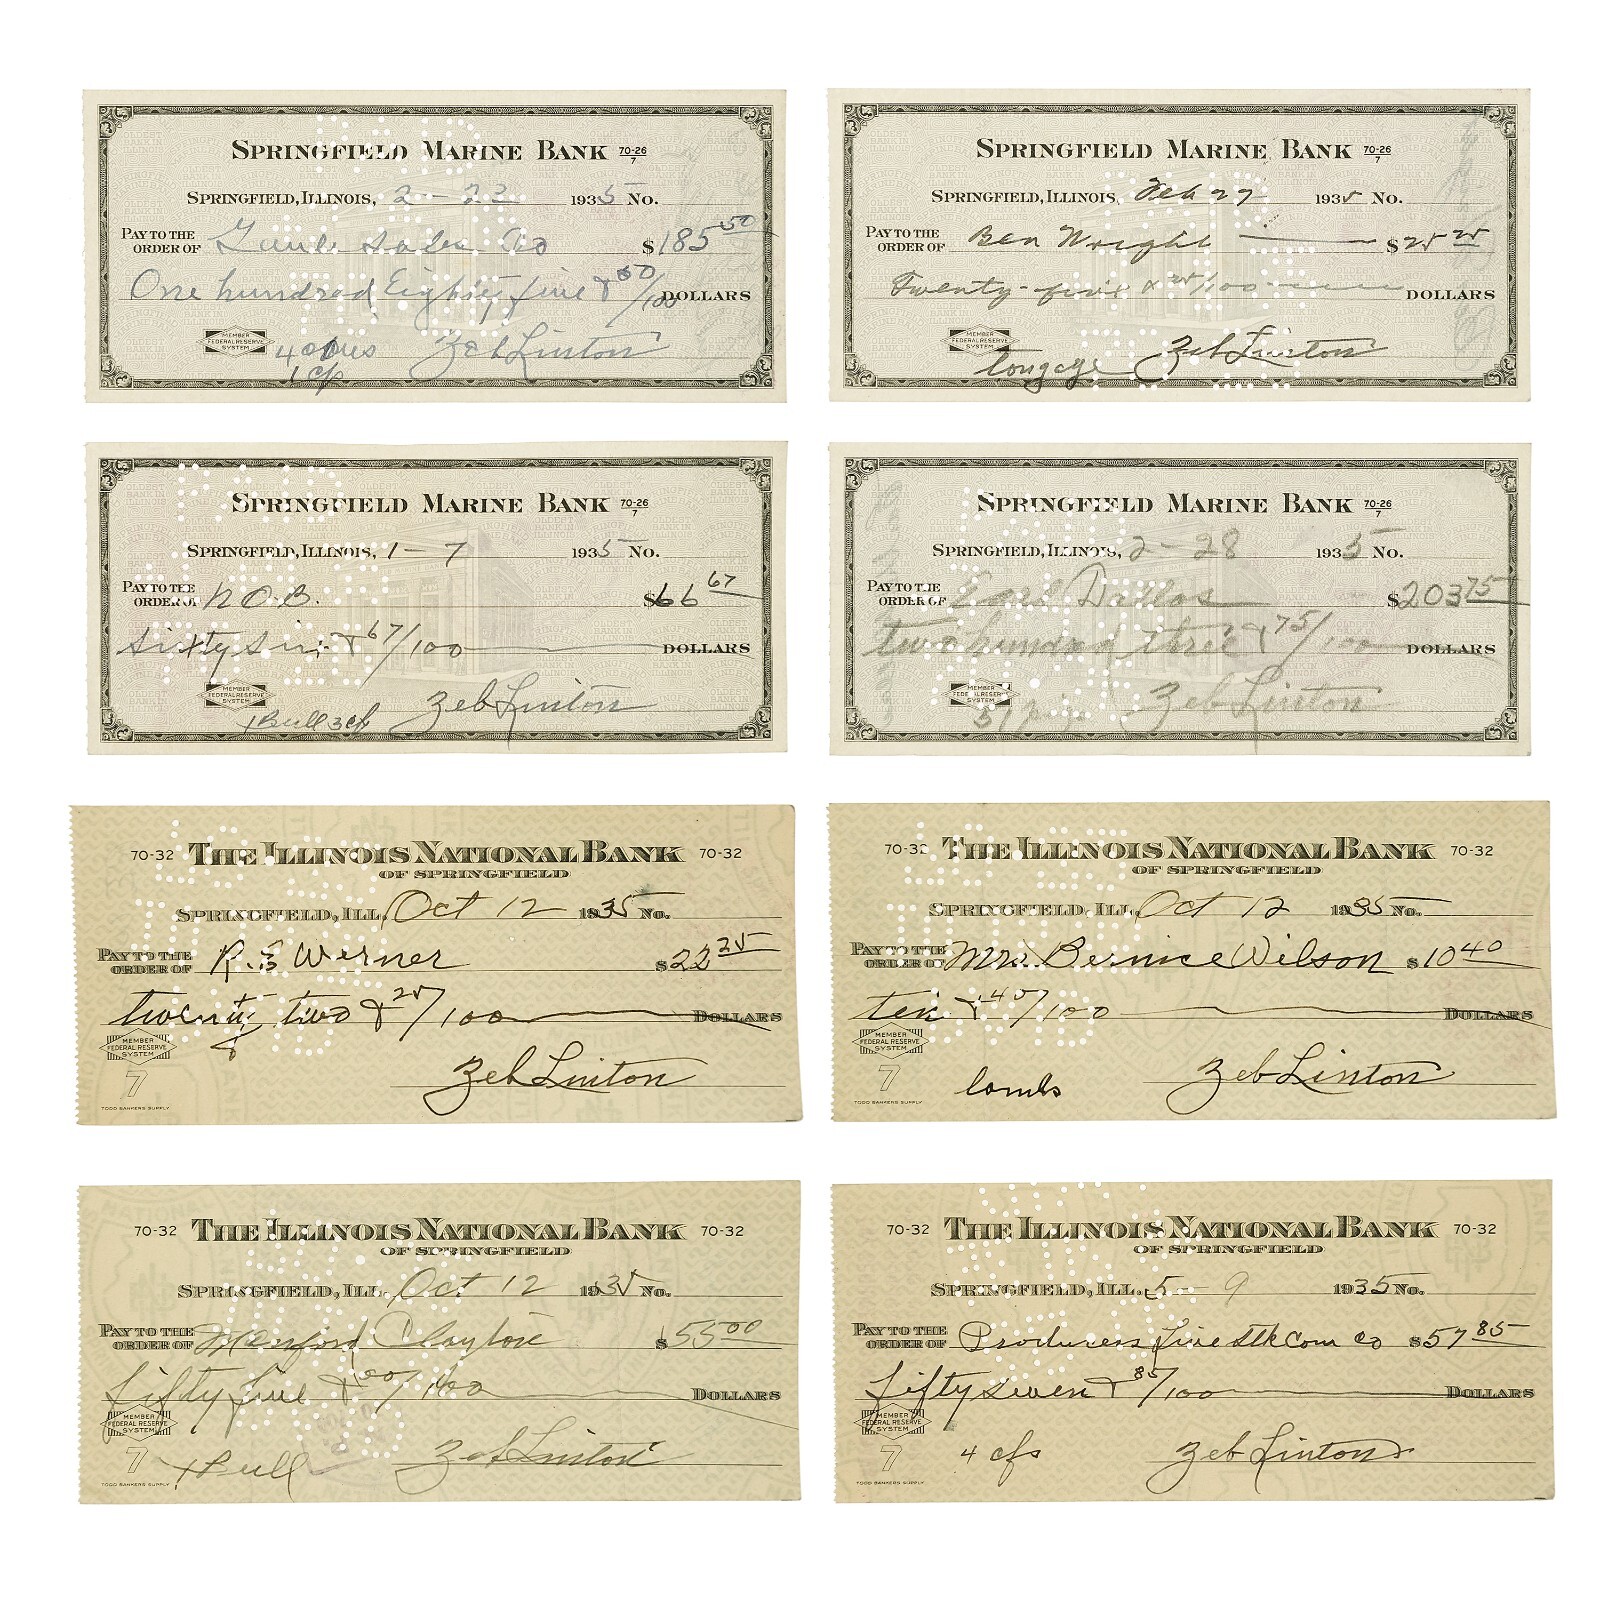 SPRINGFIELD MARINE BANK 70-26/7
SPRINGFIELD, ILLINOIS, 2-22 1935 No.
PAY TO THE ORDER OF Sales Co $185 50
One hundred Eighty five & 50/100 DOLLARS
MEMBER FEDERAL RESERVE SYSTEM
Zeb Linton
SPRINGFIELD MARINE BANK 70-26/7
SPRINGFIELD, ILLINOIS, Feb 27 1935 No.
PAY TO THE ORDER OF Ben Wright $25 25
Twenty-five & 25/100 DOLLARS
MEMBER FEDERAL RESERVE SYSTEM
Zeb Linton
SPRINGFIELD MARINE BANK 70-26/7
SPRINGFIELD, ILLINOIS, 1-7 1935 No.
PAY TO THE ORDER OF N.O.B. $66 67
Sixty Six & 67/100 DOLLARS
MEMBER FEDERAL RESERVE SYSTEM
1 Bull 3 cf Zeb Linton
SPRINGFIELD MARINE BANK 70-26/7
SPRINGFIELD, ILLINOIS, 2-28 1935 No.
PAY TO THE ORDER OF Earl Dallos $203 75
two hundred three & 75/100 DOLLARS
MEMBER FEDERAL RESERVE SYSTEM
51 Zeb Linton
70-32 THE ILLINOIS NATIONAL BANK 70-32
OF SPRINGFIELD
SPRINGFIELD, ILL. Oct 12 1935 No.
PAY TO THE ORDER OF R. E Werner $22 25
twenty two & 25/100 DOLLARS
MEMBER FEDERAL RESERVE SYSTEM
7 Zeb Linton
TODD BANKERS SUPPLY
70-32 THE ILLINOIS NATIONAL BANK 70-32
OF SPRINGFIELD
SPRINGFIELD, ILL. Oct 12 1935 No.
PAY TO THE ORDER OF Mrs. Bernice Wilson $10 40
ten & 40/100 DOLLARS
MEMBER FEDERAL RESERVE SYSTEM
7 lambs Zeb Linton
TODD BANKERS SUPPLY
70-32 THE ILLINOIS NATIONAL BANK 70-32
OF SPRINGFIELD
SPRINGFIELD, ILL. Oct 12 1935 No.
PAY TO THE ORDER OF Manford Claytore $55 00
fifty five & 00/100 DOLLARS
MEMBER FEDERAL RESERVE SYSTEM
7 1 Bull Zeb Linton
TODD BANKERS SUPPLY
70-32 THE ILLINOIS NATIONAL BANK 70-32
OF SPRINGFIELD
SPRINGFIELD, ILL. 5-9 1935 No.
PAY TO THE ORDER OF Producers Live Stk Com Co $57 85
fifty seven & 85/100 DOLLARS
MEMBER FEDERAL RESERVE SYSTEM
7 4 cfs Zeb Linton
TODD BANKERS SUPPLY